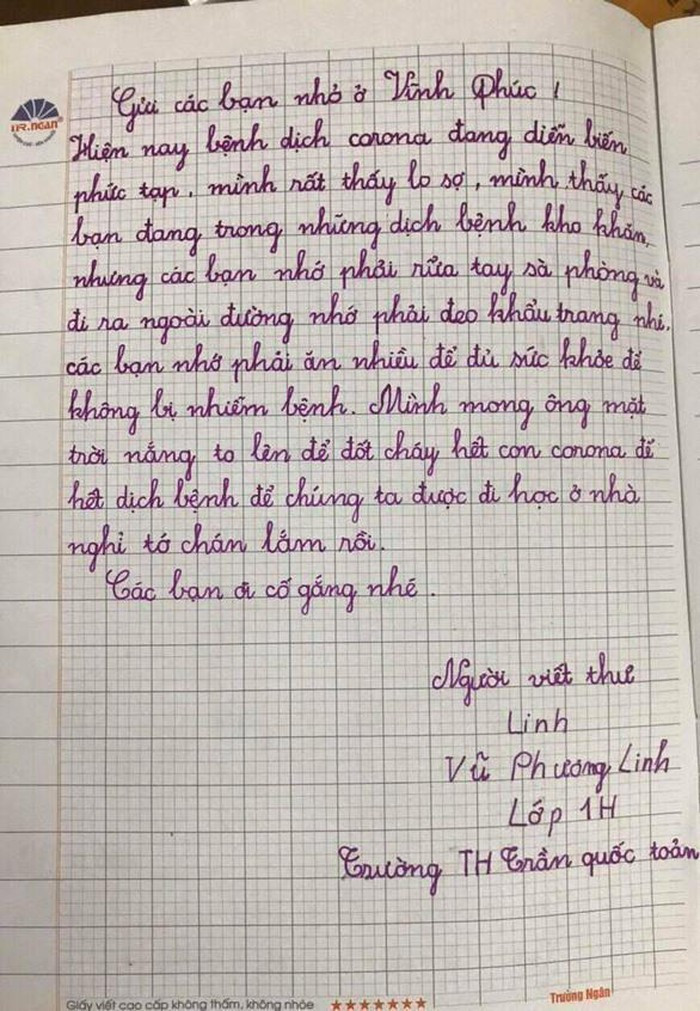 Gửi các bạn nhỏ ở Vĩnh Phúc !
TR.NGAN
Hiện nay bệnh dịch corona đang diễn biến
phức tạp. mình rất thấy lo sợ, mình thấy các
bạn đang trong những dịch bệnh kho khăn,
nhưng các bạn nhớ phải rữa tay sà phòng và
đi ra ngoài đường nhớ phải đeo khẩu trang nhé.
các bạn nhớ phải ăn nhiều để đủ sức khỏe để
không bị nhiễm bệnh. Mình mong ông mặt
trời nắng to lên để đốt cháy hết con corona để
hết dịch bệnh để chúng ta được đi học ở nhà
nghỉ tớ chán lắm rồi.
Các bạn ơi cố gắng nhé.
Người viết thư
Linh
Vũ Phương Linh
Lớp 1H
Trường TH Trần quốc toản
Giấy viết cao cấp không thấm, không nhòe
Trường Ngân